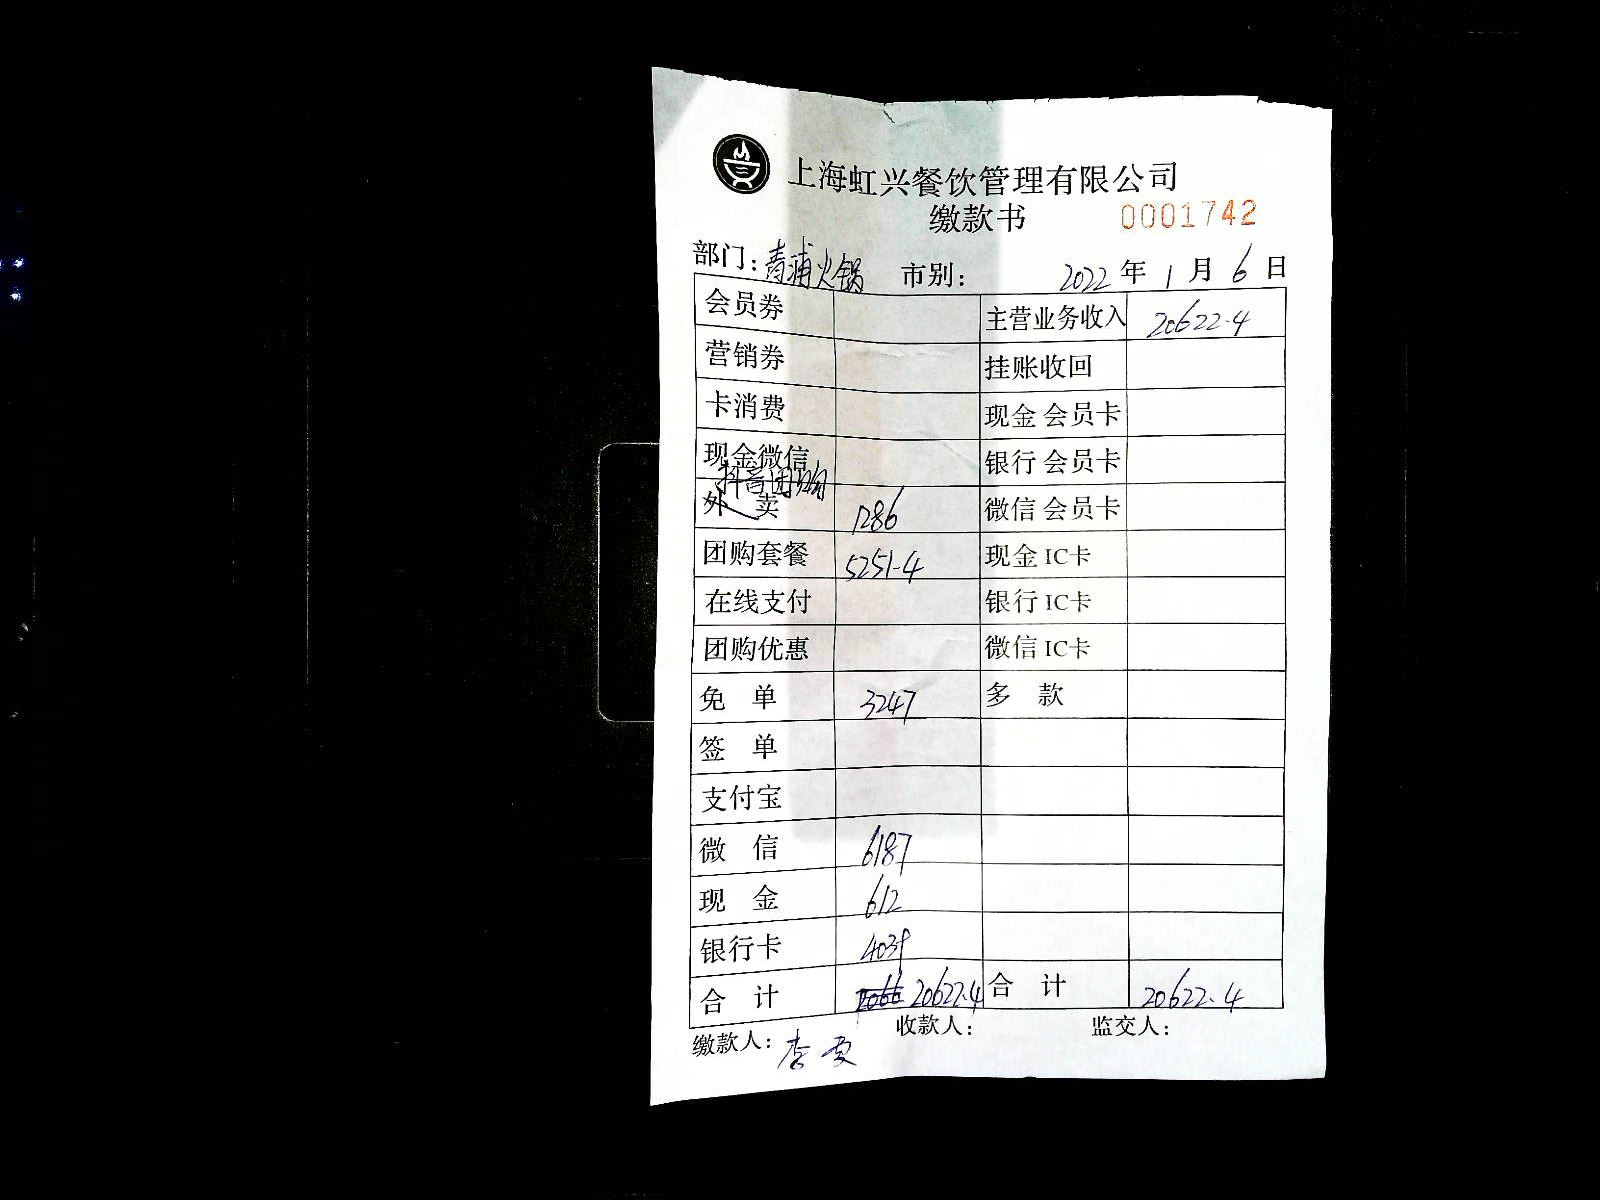 上海虹兴餐饮管理有限公司
缴款书 0001742
部门: 青浦火锅 市别: 2022 年 1 月 6 日
会员券 主营业务收入 20622.4
营销券 挂账收回
卡消费 现金 会员卡
现金微信 银行 会员卡
抖音团购
外 卖 1286 微信 会员卡
团购套餐 5251.4 现金 IC卡
在线支付 银行 IC卡
团购优惠 微信 IC卡
免 单 3247 多 款
签 单
支付宝
微 信 6187
现 金 612
银行卡 4039
合 计 20622.4 合 计 20622.4
缴款人: 李 收款人: 监交人: